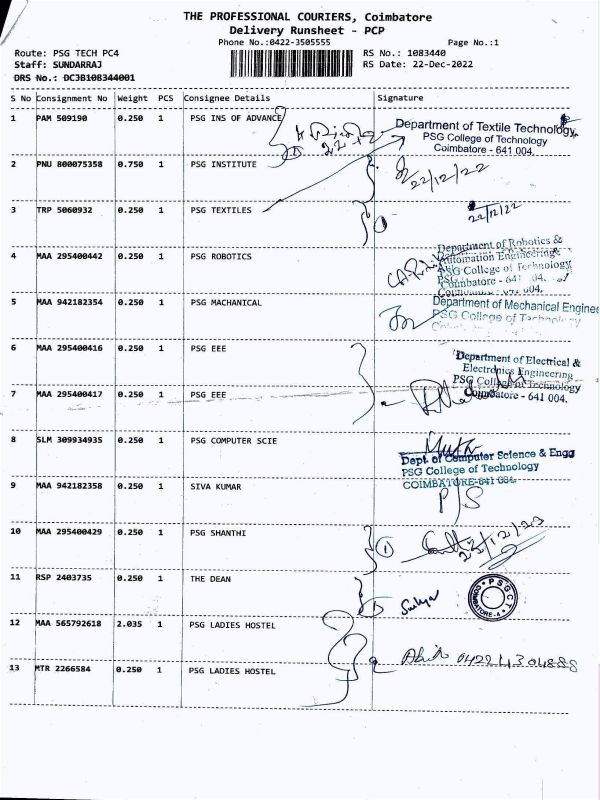 THE PROFESSIONAL COURIERS, Coimbatore
Delivery Runsheet - PCP
Phone No.:0422-3505555
Page No.:1
Route: PSG TECH PC4
RS No.: 1083440
Staff: SUNDARRAJ
RS Date: 22-Dec-2022
DRS No.: DCJB108344001
S No Consignment No Weight PCS Consignee Details Signature
1 PAM 509190 0.250 1 PSG INS OF ADVANCE
Department of Textile Technology,
PSG College of Technology
Coimbatore - 641 004.
2 PNU 800075358 0.750 1 PSG INSTITUTE
22/12/22
3 TRP 5060932 0.250 1 PSG TEXTILES
22/12/22
1
Department of Robotics &
Automation Engineering
PSG College of Technology
4 MAA 295400442 0.250 1 PSG ROBOTICS
Coimbatore - 641 004.
5 MAA 942182354 0.250 1 PSG MACHANICAL
Department of Mechanical Enginee
PSG College of Technology
6 MAA 295400416 0.250 1 PSG EEE
Department of Electrical &
Electronics Engineering
PSG College of Technology
Coimbatore - 641 004.
7 MAA 295400417 0.250 1 PSG EEE
8 SLM 309934935 0.250 1 PSG COMPUTER SCIE
Dept. of Computer Science & Engg
PSG College of Technology
COIMBATORE-641 004.
9 MAA 942182358 0.250 1 SIVA KUMAR
P/S
10 MAA 295400429 0.250 1 PSG SHANTHI
1
23/12/22
11 RSP 2403735 0.250 1 THE DEAN
PSGCT
COIMBATORE-4
12 MAA 565792618 2.035 1 PSG LADIES HOSTEL
0422 4304888
13 MTR 2266584 0.250 1 PSG LADIES HOSTEL